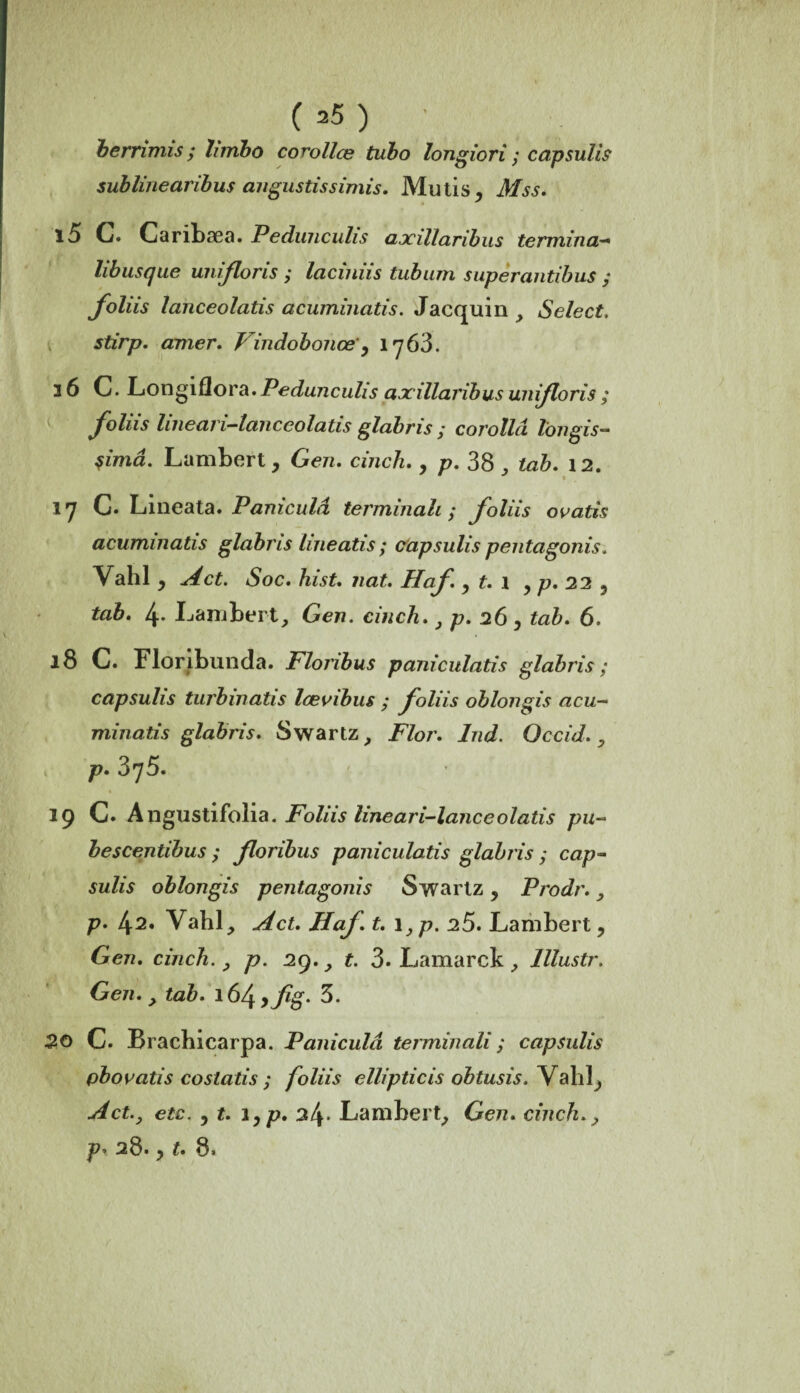 ( 25 )
berrimis ; limbo corollæ tubo longiori ; capsulis
sublinearibus angustissimis. Mutis, Mss.
15 C. Caribæa. Pedunculis axillaribus termina-
libusque unifloris ; laciniis tubum superantibus ;
foliis lanceolatis acuminatis. Jacquin, Select.
stirp. amer. Vindobonæ, 1763.
16 C. Longiflora. Pedunculis axillaribus unifloris ;
foliis lineari-lanceolatis glabris ; corollâ longis-
simâ. Lambert, Gen. cinch., p. 38, tab. 12.
17 C. Lineata. Paniculâ terminali ; foliis ovatis
acuminatis glabris lineatis ; capsulis pentagonis.
Vahl, Act. Soc. hist. nat. Haf., t. 1, p. 22,
tab. 4. Lambert, Gen. cinch., p. 26, tab. 6.
18 C. Floribunda. Floribus paniculatis glabris ;
capsulis turbinatis lævibus ; foliis oblongis acu-
minatis glabris. Swartz, Flor. Ind. Occid.,
p. 375.
19 C. Angustifolia. Foliis lineari-lanceolatis pu-
bescentibus ; floribus paniculatis glabris ; cap-
sulis oblongis pentagonis Swartz, Prodr.,
p. 42. Vahl, Act. Haf. t. 1, p. 25. Lambert,
Gen. cinch., p. 29., t. 3. Lamarck, Illustr.
Gen., tab. 164, fig. 3.
20 C. Brachicarpa. Paniculâ terminali ; capsulis
obovatis costatis ; foliis ellipticis obtusis. Vahl,
Act., etc., t. 1, p. 24. Lambert, Gen. cinch.,
p. 28., t. 8.